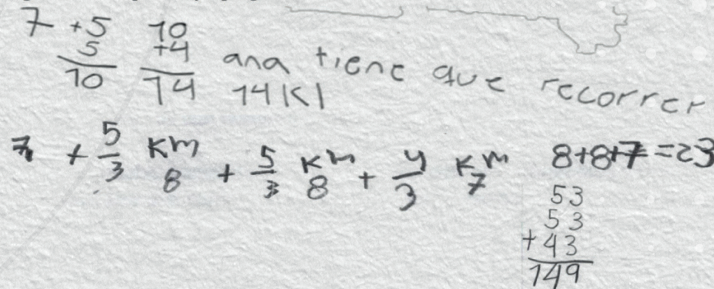 7 +5 10
5 +4 ana tiene que recorrer
10 14 14Kl
+ 5/3 Km 8 + 5/3 Km 8 + 4/3 Km 7 8+8+7=23
53
53
+43
149